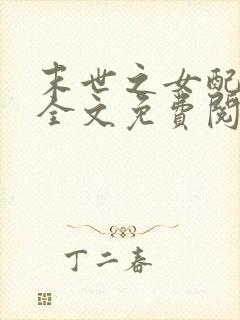 末世之女配
全文免费阅
丁二春